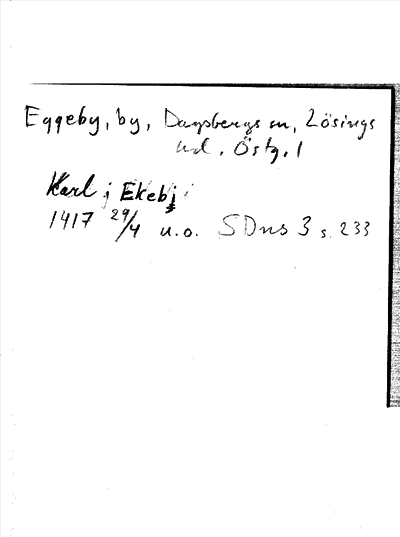 Eggeby, by, Dagsbergs sn, Lösings
hd, Östg. l
Karl j Ekebj
1417 29/4 u.o. SDns 3 s. 233